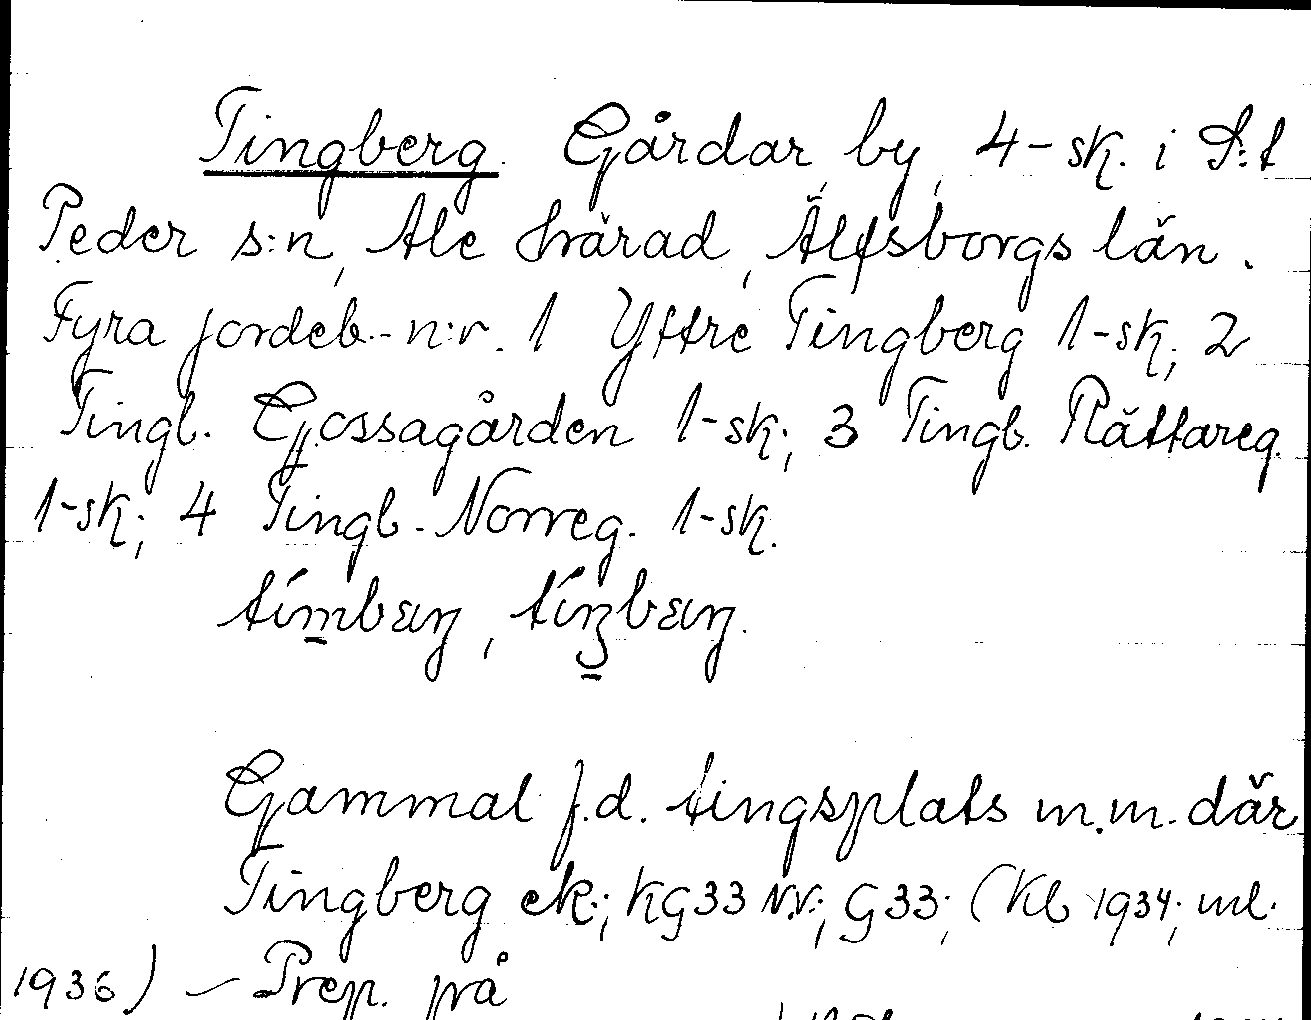 Tingberg. Gårdar, by, 4-sk. i S:t
Peder s:n, Ale härad, Älfsborgs län.
Fyra jordeb.-n:r. 1 Yttre Tingberg 1-sk; 2
Tingb. Gossagården 1-sk; 3 Tingb. Rättareg.
1-sk; 4 Tingb. Norreg. 1-sk.
Gammal f.d. tingsplats m.m. där
Tingberg ek; KG33 NV; G33; (Kb 1934; ml.
1936) – Prep. på